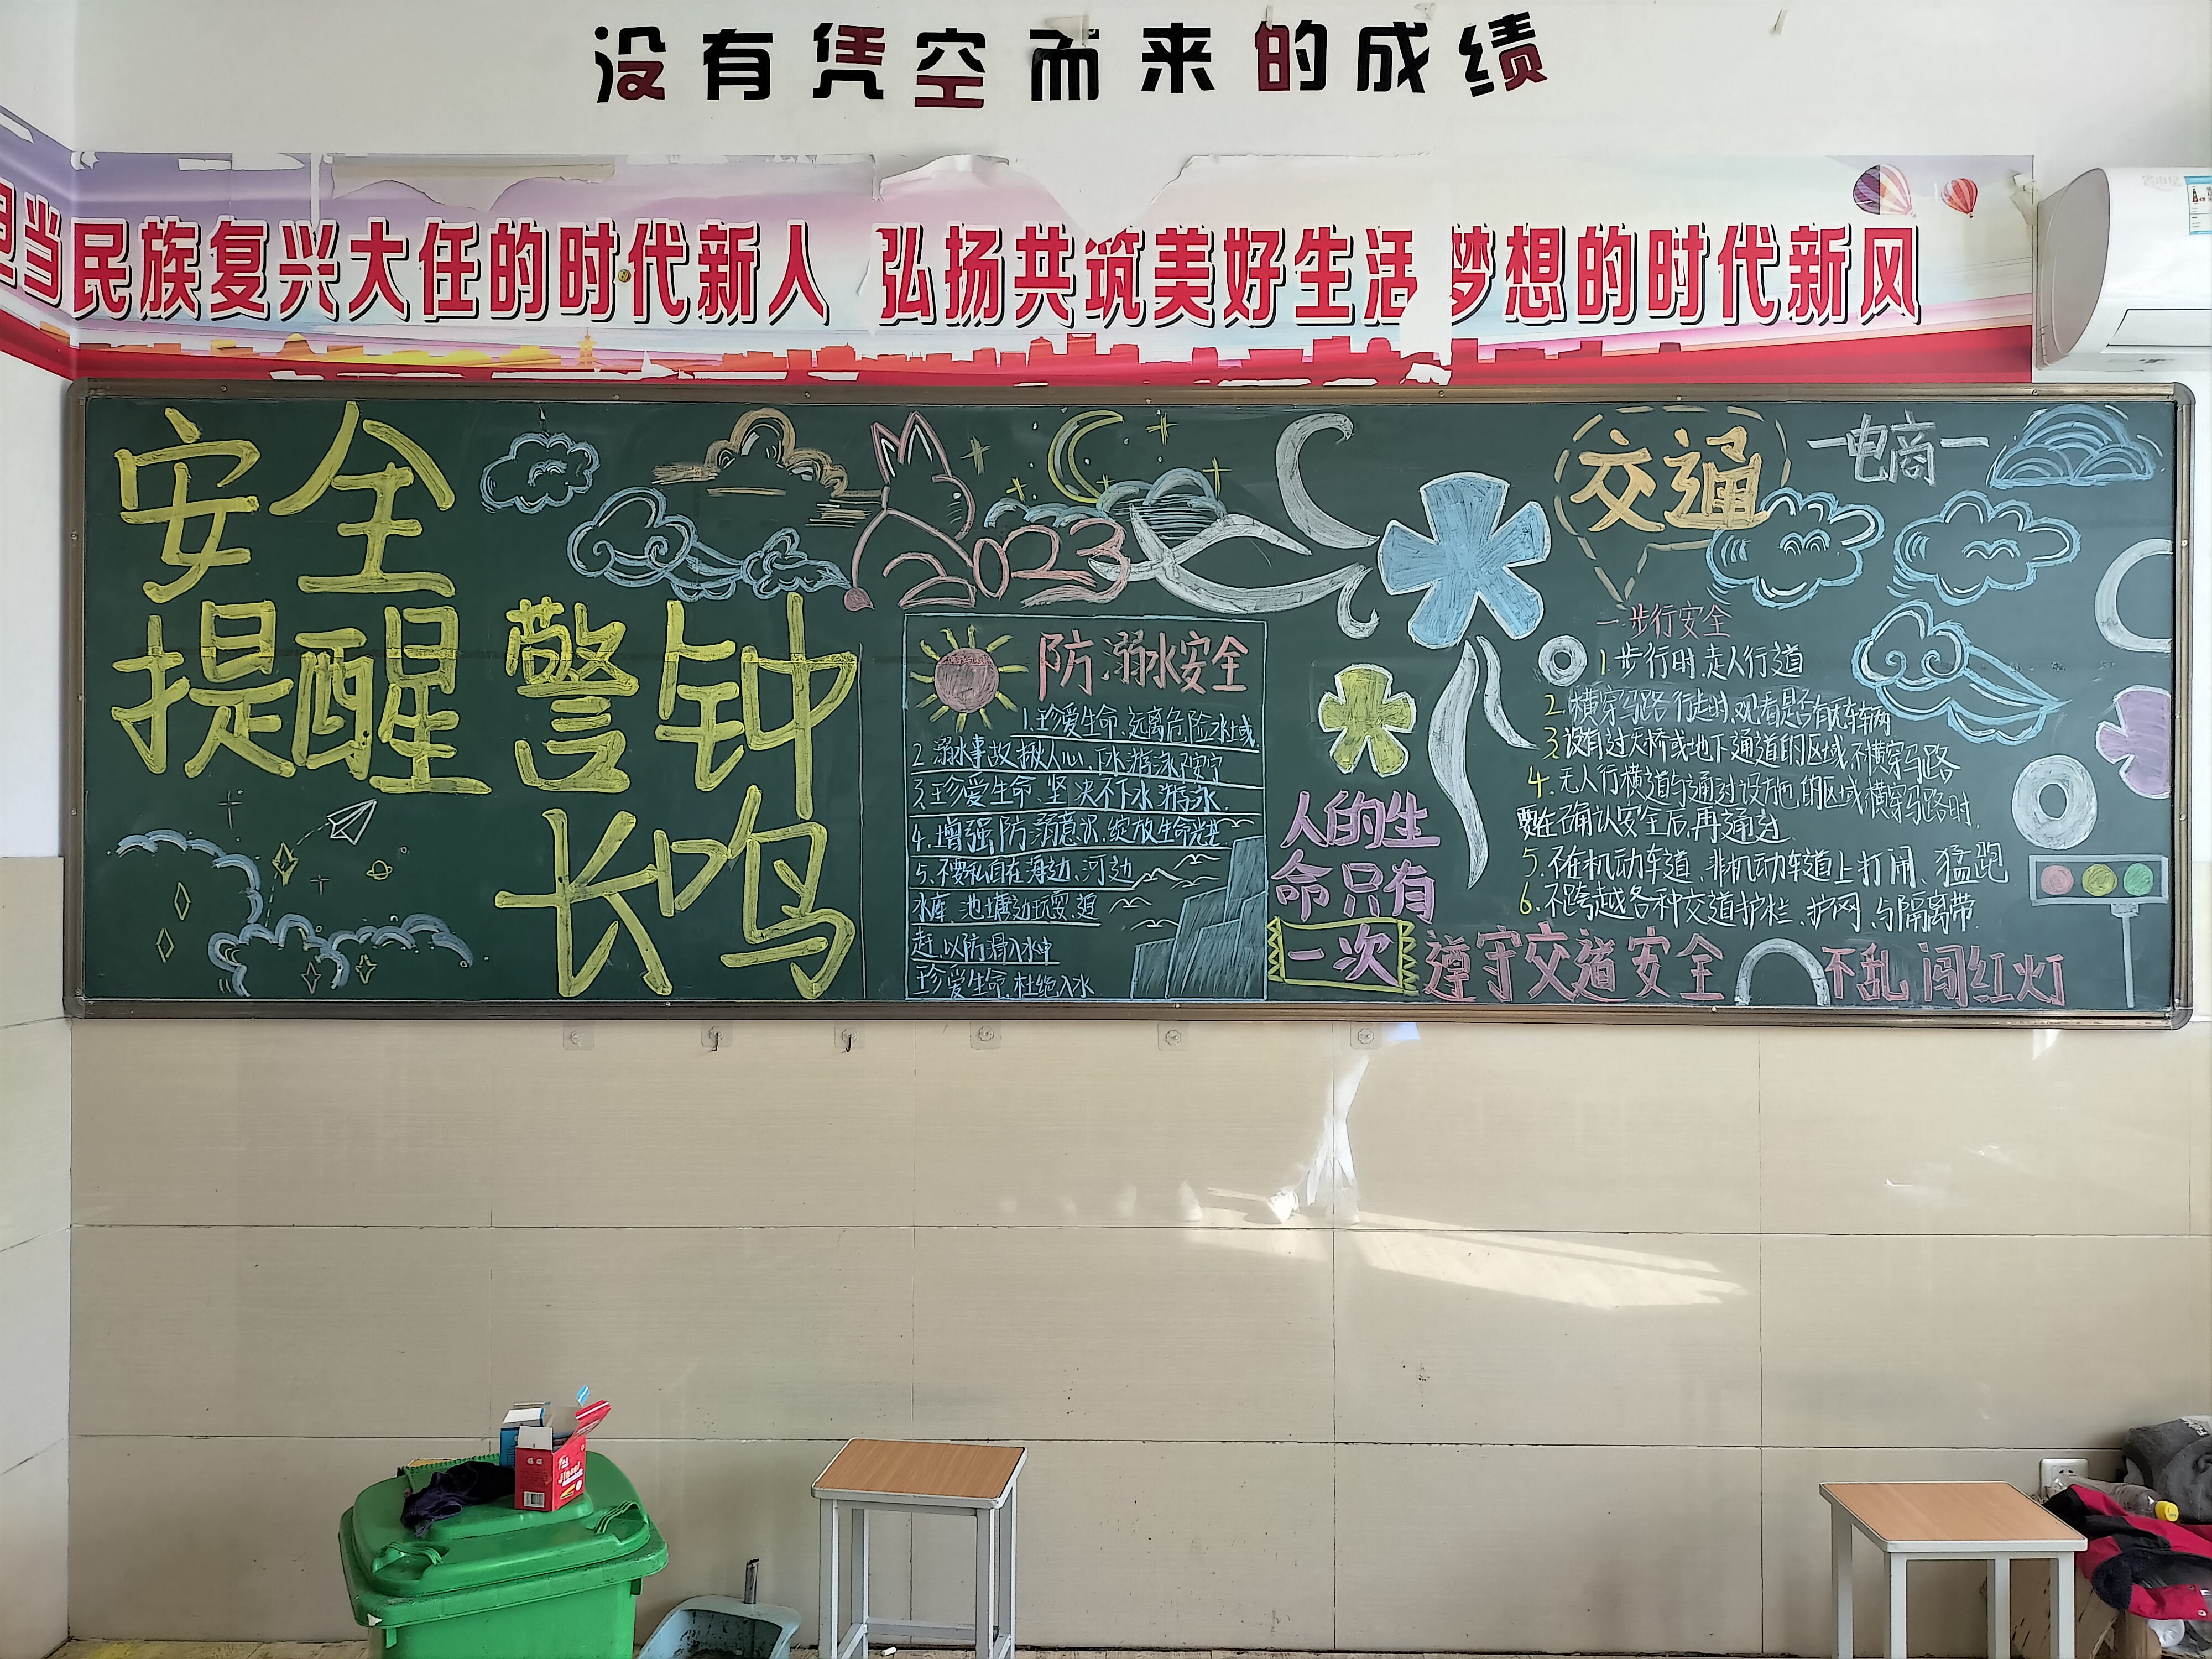 没有凭空而来的成绩
担当民族复兴大任的时代新人 弘扬共筑美好生活梦想的时代新风
安全
提醒 警钟
长鸣
2023
防溺水安全
1.珍爱生命,远离危险水域.
2.溺水事故揪人心、下水游泳要安宁
3.珍爱生命、坚决不下水游泳.
4.增强防溺意识.绽放生命光芒.
5.不要私自在海边、河边
水库、池塘边玩耍、追
赶,以防滑入水中
珍爱生命,杜绝入水
人的生
命只有
一次
交通
一电商一
一.步行安全
1.步行时,走人行道
2.横穿马路行走时,观看是否有大车辆
3.没有过天桥或地下通道的区域,不横穿马路
4.无人行横道与通过设施的区域,横穿马路时,
要在确认安全后,再通过.
5.不在机动车道、非机动车道上打闹、猛跑
6.不跨越各种交道护栏、护网、与隔离带.
遵守交道安全 不乱闯红灯